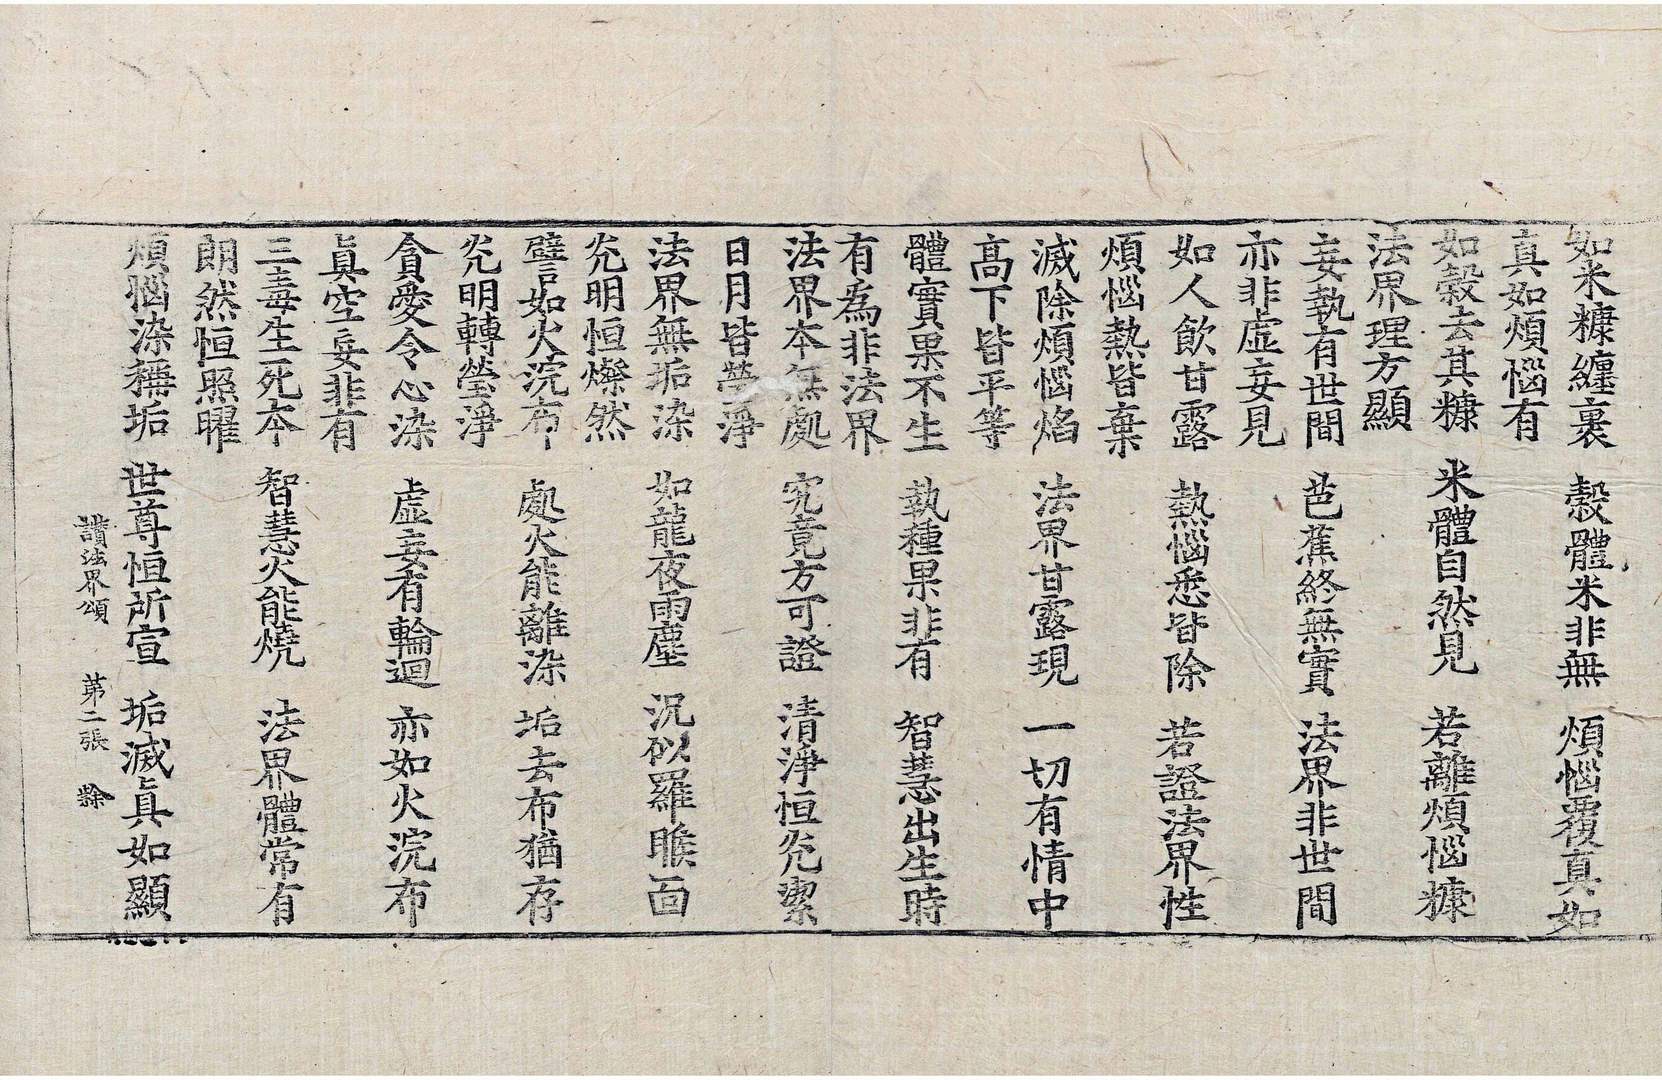 如米糠纏裹 糓體米非無 煩惱覆真如
真如煩惱有
如糓去其糠 米體自然見 若離煩惱糠
法界理方顯
妄執有世間 芭蕉終無實 法界非世間
亦非虛妄見
如人飲甘露 熱惱悉皆除 若證法界性
煩惱熱皆棄
滅除煩惱焰 法界甘露現 一切有情中
高下皆平等
體實果不生 執種果非有 智慧出生時
有爲非法界
法界本無處 究竟方可證 清淨恒光潔
日月皆瑩淨
法界無垢染 如龍夜雨塵 況似羅睺面
光明恒燦然
譬如火浣布 處火能離染 垢去布猶存
光明轉瑩淨
貪愛令心染 虛妄有輪迴 亦如火浣布
眞空妄非有
三毒生死本 智慧火能燒 法界體常有
朗然恒照曜
煩惱染稱垢 世尊恒所宣 垢滅眞如顯
讚法界頌 第二張